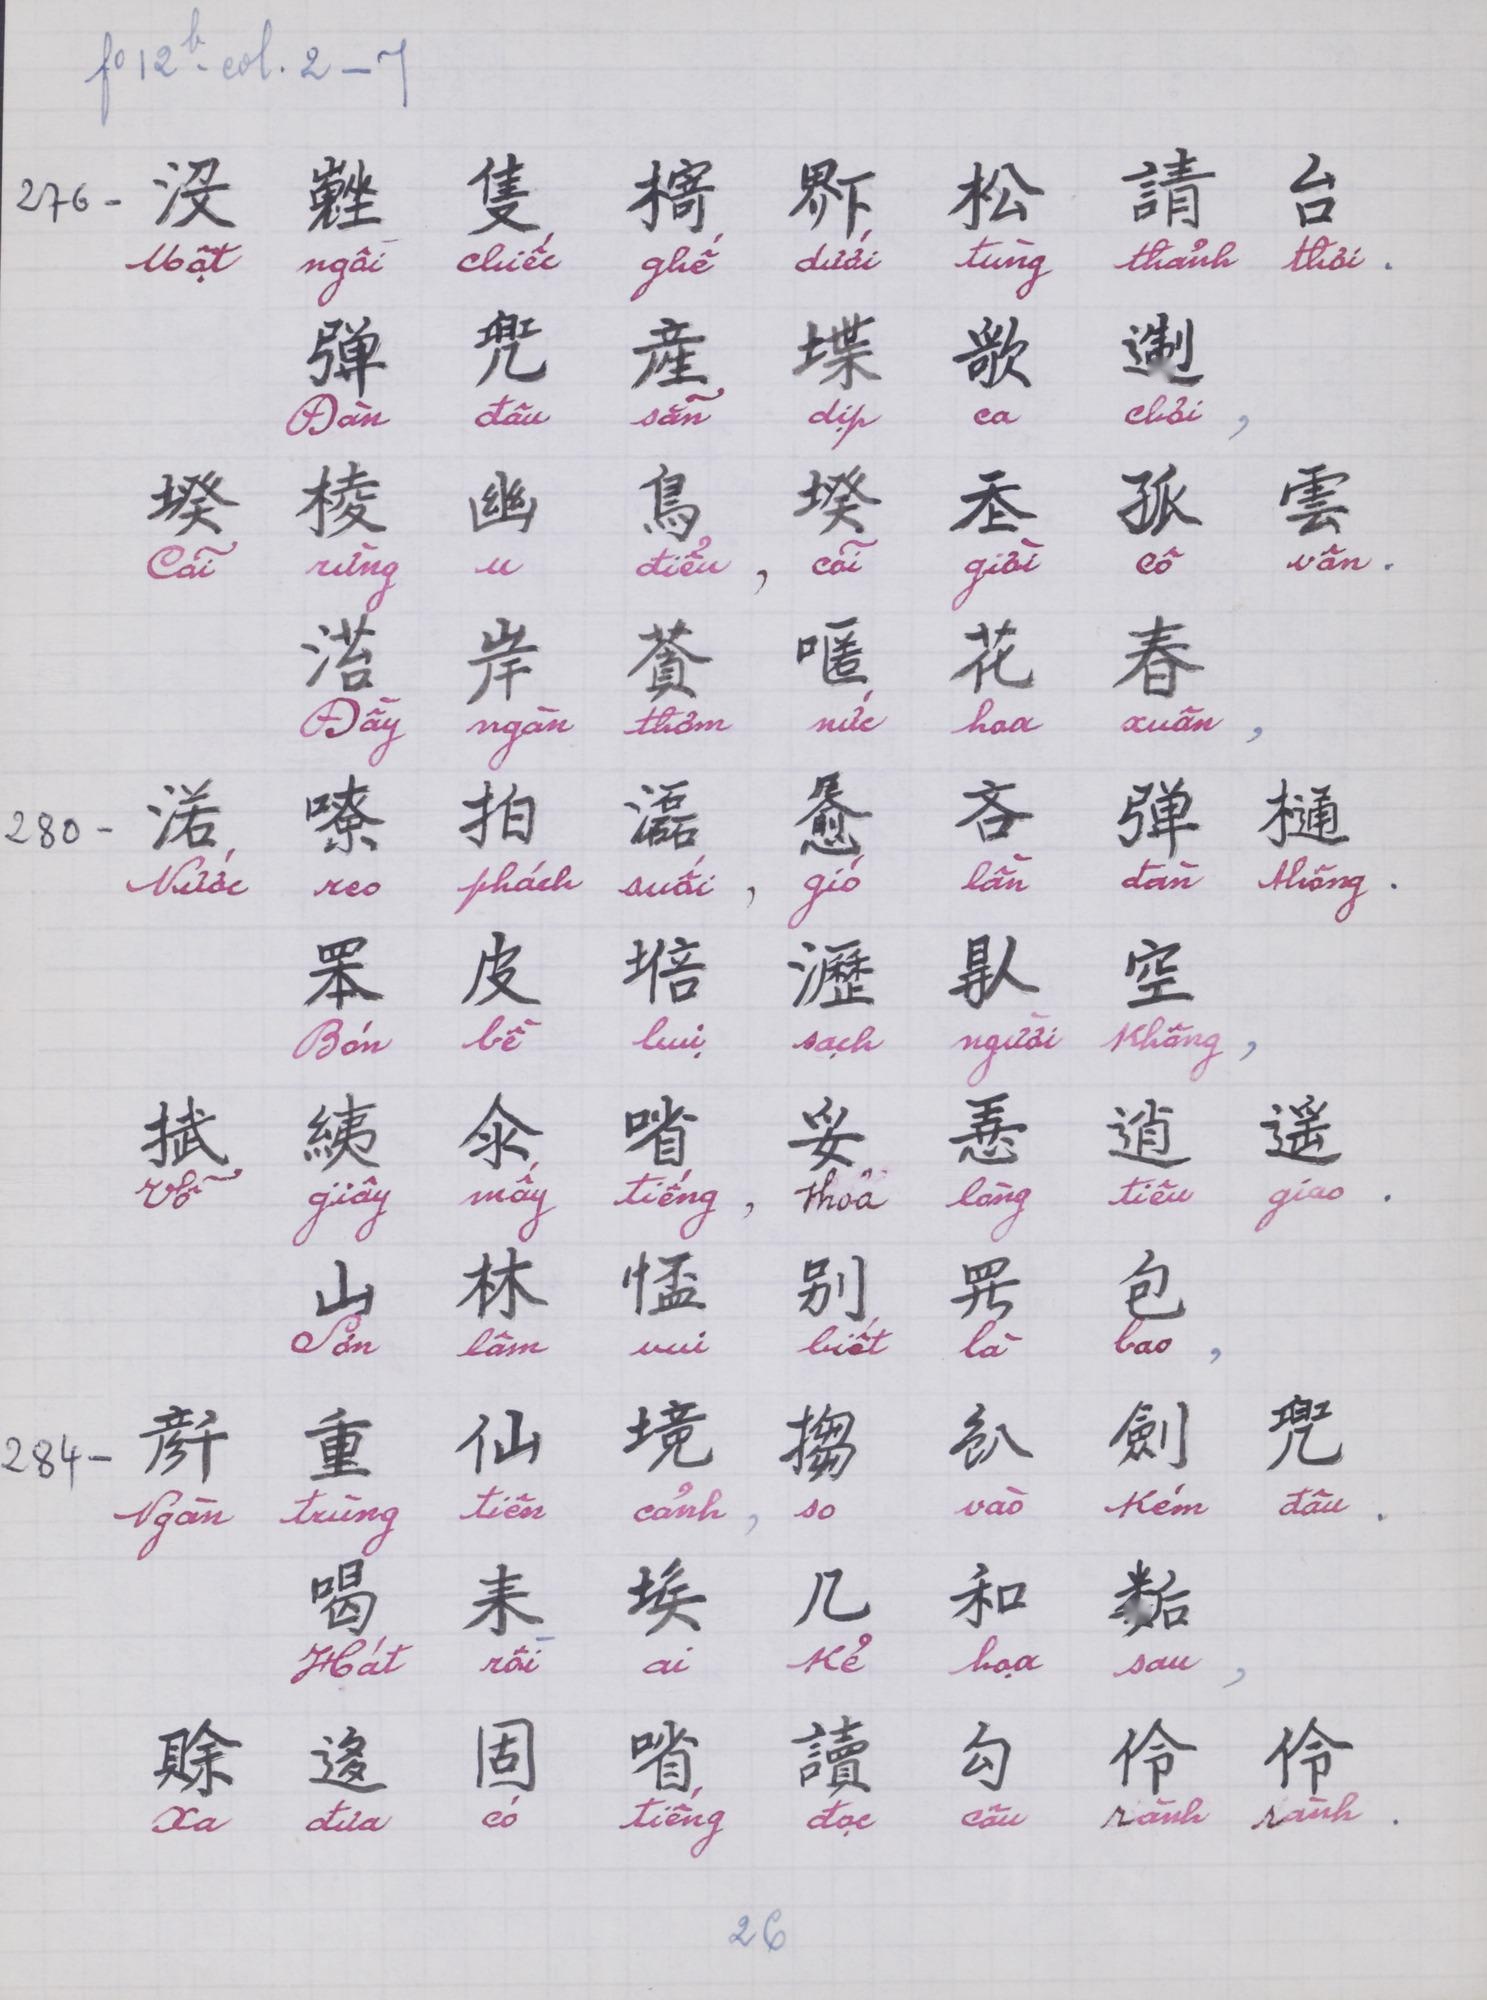 fº 12ᵇ. col. 2 – 7
276 – 沒 𡎢 隻 槣 𤲂 松 請 台
Một ngồi chiếc ghế dưới tùng thảnh thơi .
弹 兜 産 堞 歌
Đàn đâu sẵn dịp ca chơi ,
堺 棱 幽 鳥 堺 𡗶 孤 雲
Cõi rừng u điểu , cõi giời cô vân .
岸 花 春
Đầy ngàn thơm nức hoa xuân ,
280 – 渃 嘹 拍 𤂬 吝 弹 樋
Nước reo phách suối , gió lần đàn thông .
𦊚 皮 掊 瀝 𠊚 空
Bốn bề bụi sạch người không ,
拭 𠇍 㗂 妥 𢚸 逍 遥
Vỗ giây mấy tiếng , thoả lòng tiêu giao .
山 林 𢝙 别 𱺵 包
Sơn lâm vui biết là bao ,
284 – 𠦳 重 仙 境 𠓨 劍 兜
Ngàn trùng tiên cảnh , so vào kém đâu .
喝 耒 埃 几 和 𢖖
Hát rồi ai kẻ hoạ sau ,
賒 迻 固 㗂 讀 勾 伶 伶
Xa đưa có tiếng đọc câu rành rành .
26